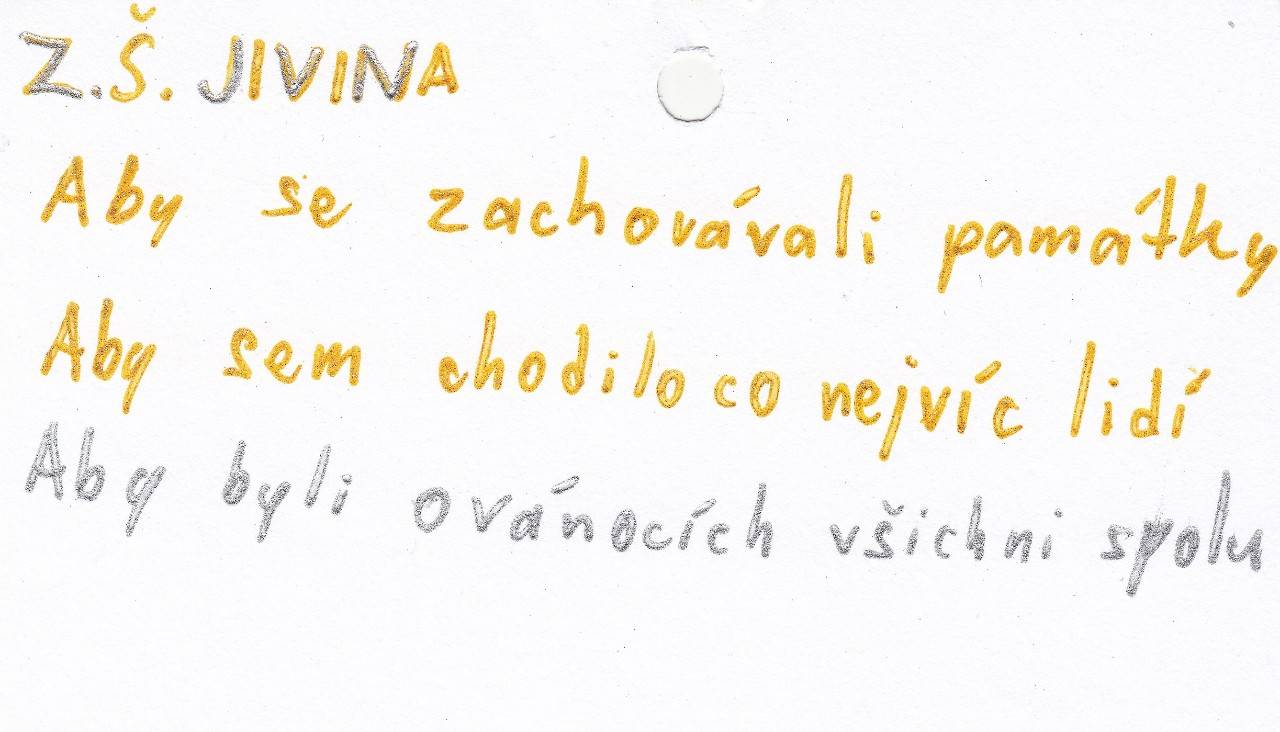 Z.Š. JIVINA
Aby se zachovávali památky
Aby sem chodilo co nejvíc lidí
Aby byli ovánocích všichni spolu